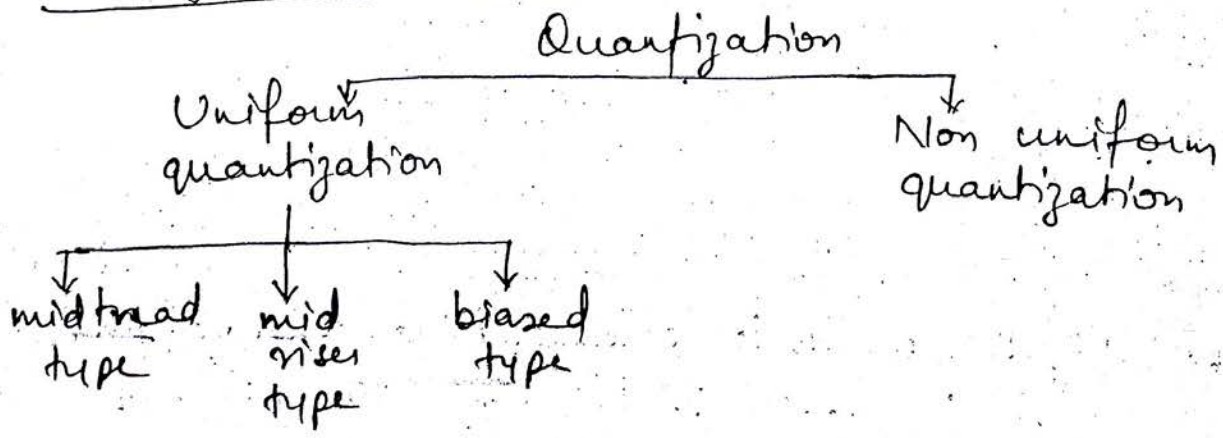 Quantization
Uniform
quantization
Non uniform
quantization
midtread
type
mid
riser
type
biased
type